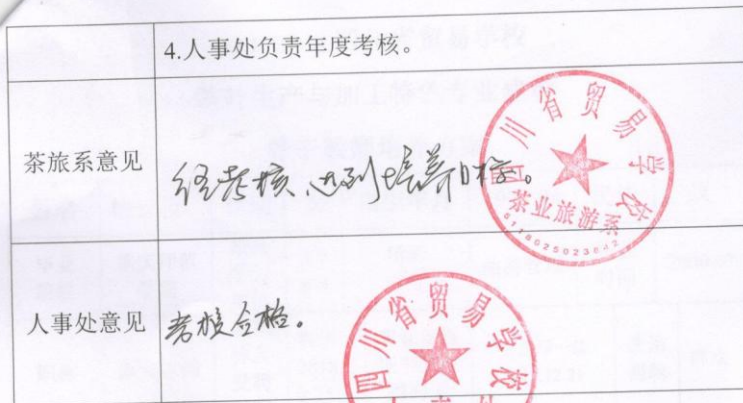 4.人事处负责年度考核。
茶旅系意见
经考核、达到培养目标。
四川省贸易学校
茶业旅游系
人事处意见
考核合格。
四川省贸易学校